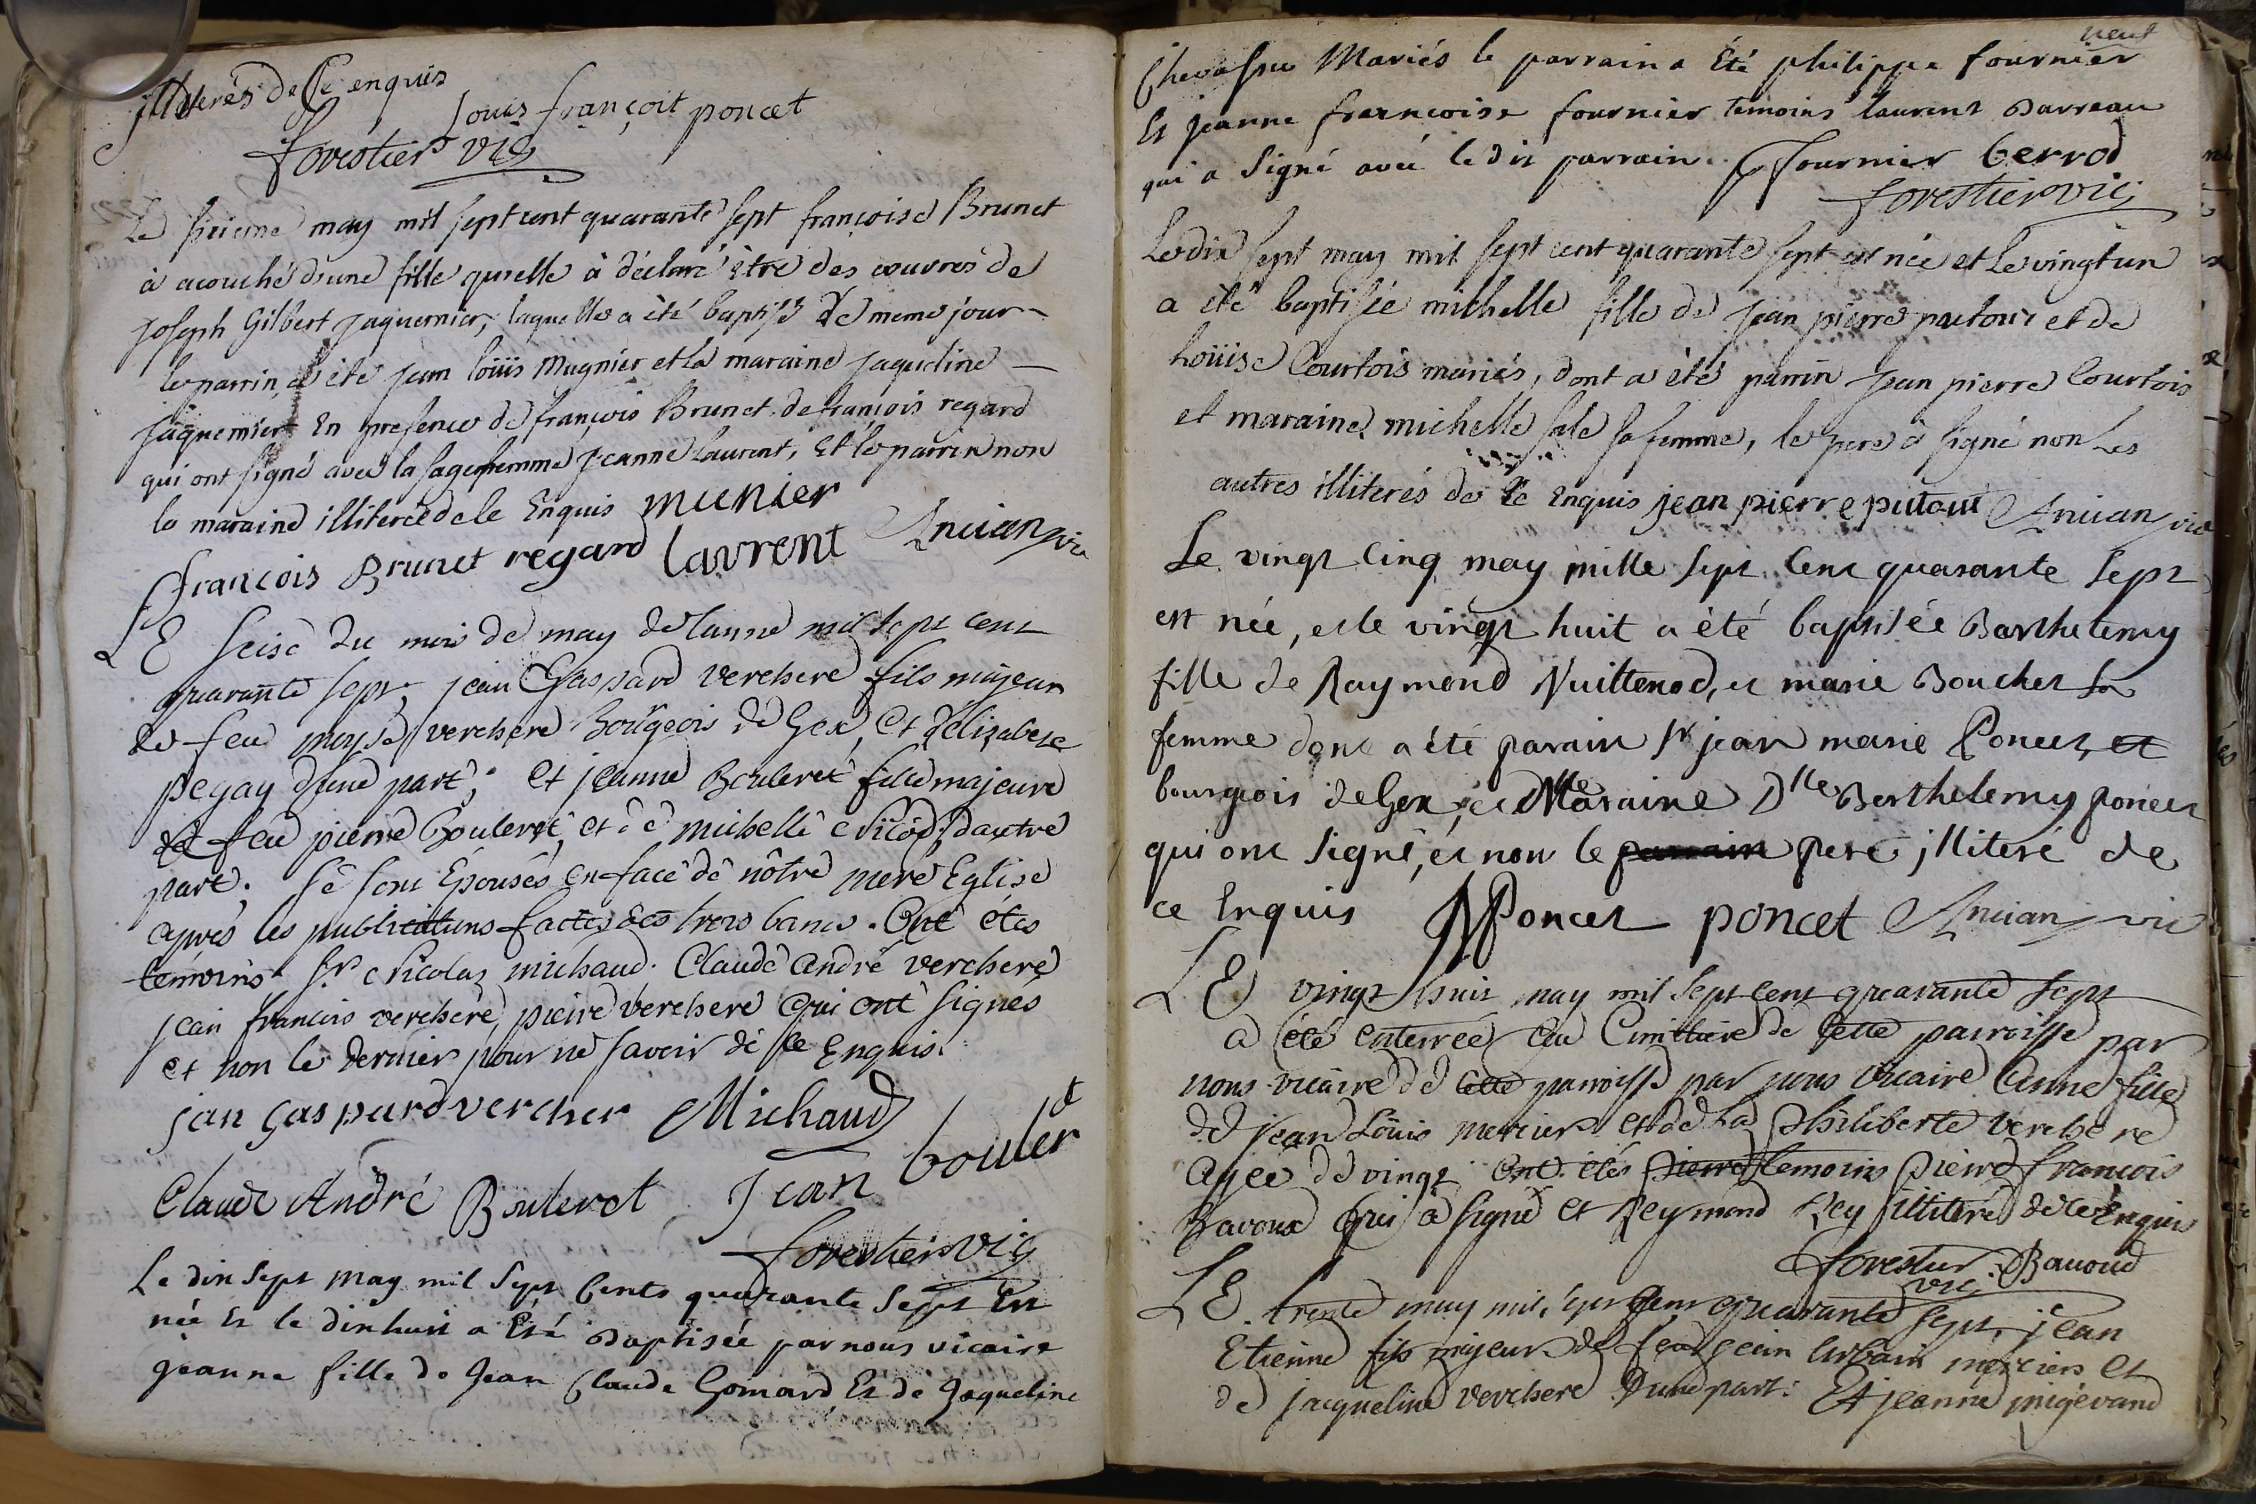 illiterés de ce enquis
Louis françoit poncet
forestier vic
Le seieme may mil sept cent quarante sept françoise Brunet
à acouché d'une fille qu'elle à déclaré être des œuvres de
joseph Gilbert jaquemier, laquelle a été baptisé le meme jour
le parrin a été jean loüis Mugnier et la maraine jaqueline
jaquemier En presence de françois Brunet, de françois regard
qui ont signé avec la sagefemme jeanne laurent, Et le parrin non
la maraine illiterée de ce Enquis munier
françois Brunet regard lavrent Ancian vic
LE seise du mois de may de lanné mil sept cent
quarante sept jean Gaspard verchere fils majeur
de feu moyse verchere Bourgeois de Gex, et d'elizabete
pegay d'une part; et jeanne Bouleret fille majeure
de feu pierre Bouleret, et de michelle Nicod, d'autre
part. se sont Épousés en face de nôtre mere Eglise
apres les publications faites des trois bancs. Ont étes
temoins Sr Nicolas michaud. Claude andré verchere
jean francois verchere, pierre verchere qui ont signés
et non le dernier pour ne savoir de ce Enquis.
jan gaspard vercher Michaud
Claude André Bouleret Jean boulert
forestier vic
Le dix sept may mil sept Cents quarante sept Est
née Et le dixhuit a Été Baptisée par nous vicaire
jeanne fille de Jean Claude Gomard Et de Jaqueline
neuf
Chevassu Mariés le parrain a Été philippe fournier
Et jeanne francoise fournier temoins laurent Barreau
qui a Signé avec le dit parrain. fournier berrod
forestier vic
Le dix sept may mil sept cent quarante sept est née et le vingt un
a été baptisée michelle fille de jean pierre putout et de
Loüise Courtois mariés, dont a été parrin jean pierre Courtois
et maraine michelle sale sa femme, le pere a signé non Les
autres illiterés de ce Enquis jean pierre putout Ancian vic
Le vingt Cinq may mille sept Cent quarante sept
est née, et le vingt huit a été baptisée Barthelemy
fille de Raymond Nuittenod, et marie Boucher sa
femme dont a été parain Sr jean marie Poncet, et
bourgeois de Gex, et Maraine Dlle Berthelemy poncet
qui ont signé, et non le parrain pere, illiteré de
ce Enquis Poncet poncet Ancian vic
LE vingt huit may mil sept cent quarante sept
a été enterrée au Cimitiere de cette parroisse par
nous vicaire de cette parroisse par nous vicaire Anne fille
de jean Loüis mercier et de la Philiberte verchere
agee de vingt ont étés pierre temoins pierre francois
Bavoux qui a signé et Reymond Rey illiteré de ce Enquis
forestier vic Bauoud
LE trente may mil sept cent quarante sept, jean
Etienne fils majeur de feu jean urbain mercier et
de jacqueline verchere d'une part: Et jeanne migévand